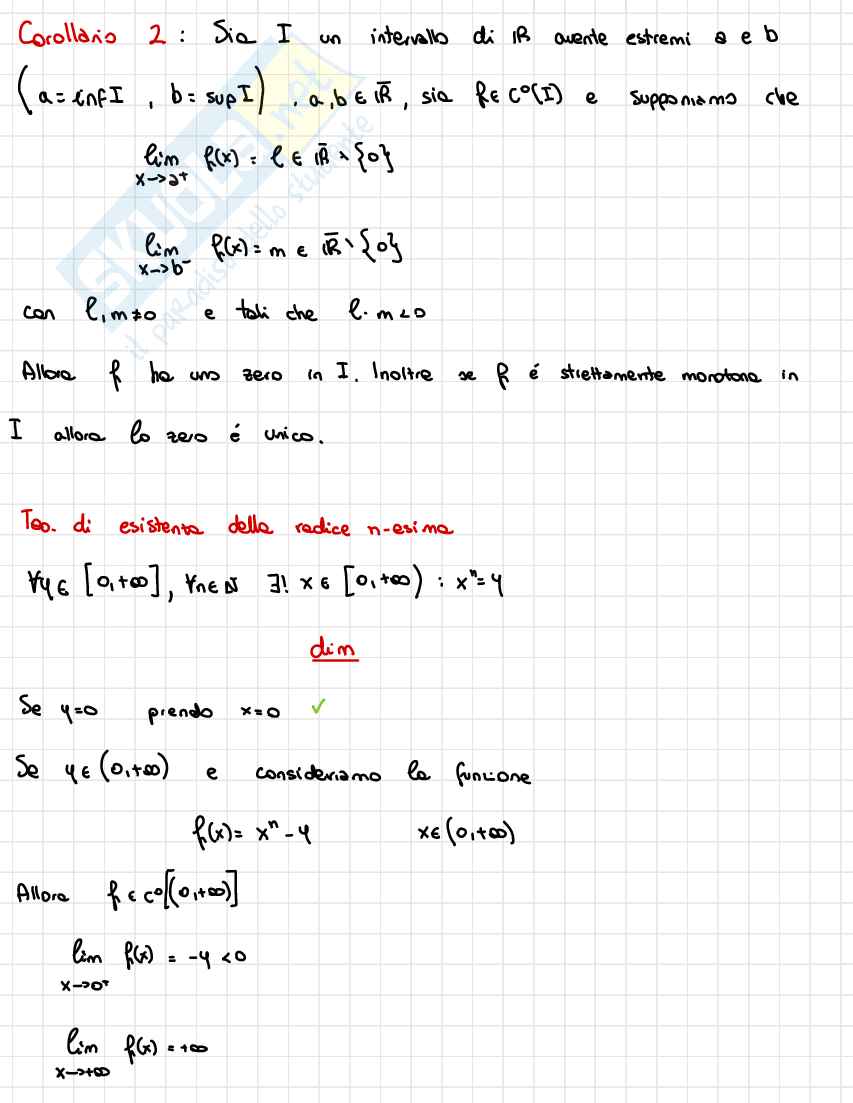 Corollario 2 : Sia I un intervallo di ℝ avente estremi a e b
(a = inf I , b = sup I) , a,b ∈ ℝ̄ , sia f ∈ C⁰(I) e supponiamo che
lim x→a⁺ f(x) = l ∈ ℝ̄ \ {0}
lim x→b⁻ f(x) = m ∈ ℝ̄ \ {0}
con l,m ≠ 0 e tali che l · m < 0
Allora f ha uno zero in I. Inoltre se f é strettamente monotona in
I allora lo zero é unico.
Teo. di esistenza della radice n-esima
∀y ∈ [0,+∞], ∀n ∈ ℕ ∃! x ∈ [0,+∞) : xⁿ = y
dim
Se y=0 prendo x=0 ✓
Se y ∈ (0,+∞) e consideriamo la funzione
f(x) = xⁿ - y x ∈ (0,+∞)
Allora f ∈ C⁰[(0,+∞)]
lim x→0⁺ f(x) = -y < 0
lim x→+∞ f(x) = +∞
SKUOLA.net
il paradiso dello studente